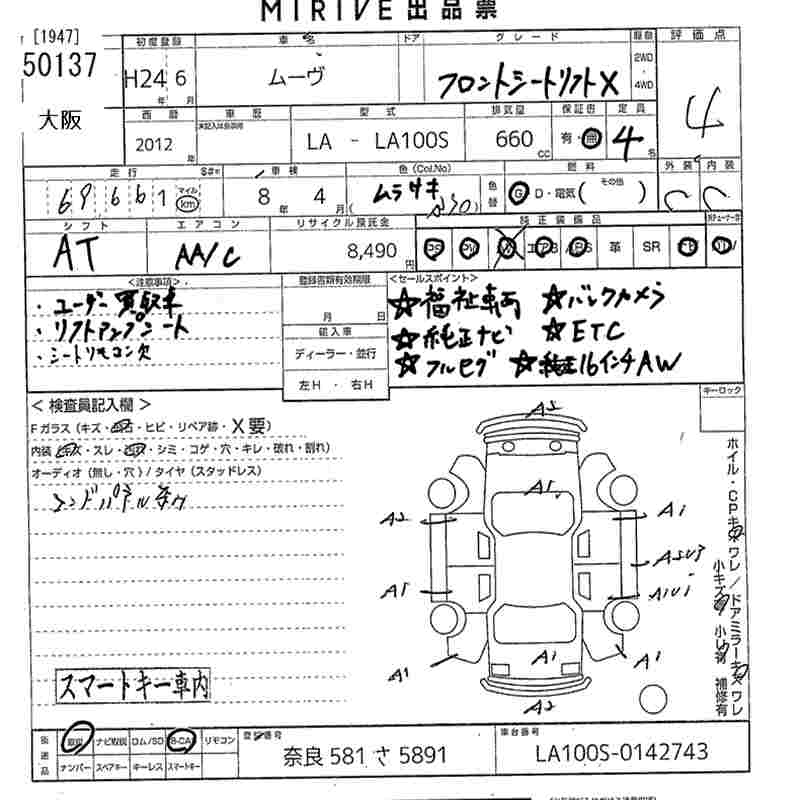 MIRIVE出品票
[1947]
50137
大阪
初度登録 車名 ドア グレード 駆動 評価点
H24 6 ムーヴ フロントシートリフトX 2WD・4WD 4
年 月
西暦 車歴 型式 排気量 保証書 定員
2012 未記入は自家用 LA - LA100S 660 有・無 4
年 CC 名
走行 車検 色(Col.No) 燃料 外装 内装
69661 マイル km 8年 4月 ムラサキ 色替 G D・電気 (その他) C C
シフト エアコン リサイクル預託金 純正装備品
AT AA/C 8,490円 PS PW エアB ABS 革 SR
<注意事項> 登録書類有効期限 <セールスポイント>
・ユーザー買取車
・リフトアップシート
・シートリモコン欠
月 日
輸入車
ディーラー・並行
左H・右H
☆福祉車両 ☆バックカメラ
☆純正ナビ ☆ETC
☆フルセグ ☆純正16インチAW
キーロック
<検査員記入欄>
Fガラス (キズ・飛石・ヒビ・リペア跡・X要)
内装 (キズ・スレ・汚れ・シミ・コゲ・穴・キレ・破れ・割れ)
オーディオ (無し・穴) / タイヤ (スタッドレス)
A2
A1
A2 A1
A1
A1 A1
A1
A2
ホイル・CPキズワレ/ドアミラーキズワレ
小キズ有 小凹有 補修有
スマートキー車内
後送品 取説 ナビ取説 ロム/SD B-CAS リモコン
ナンバー スペアキー キーレス スマートキー
登録番号
奈良 581 さ 5891
車台番号
LA100S-0142743